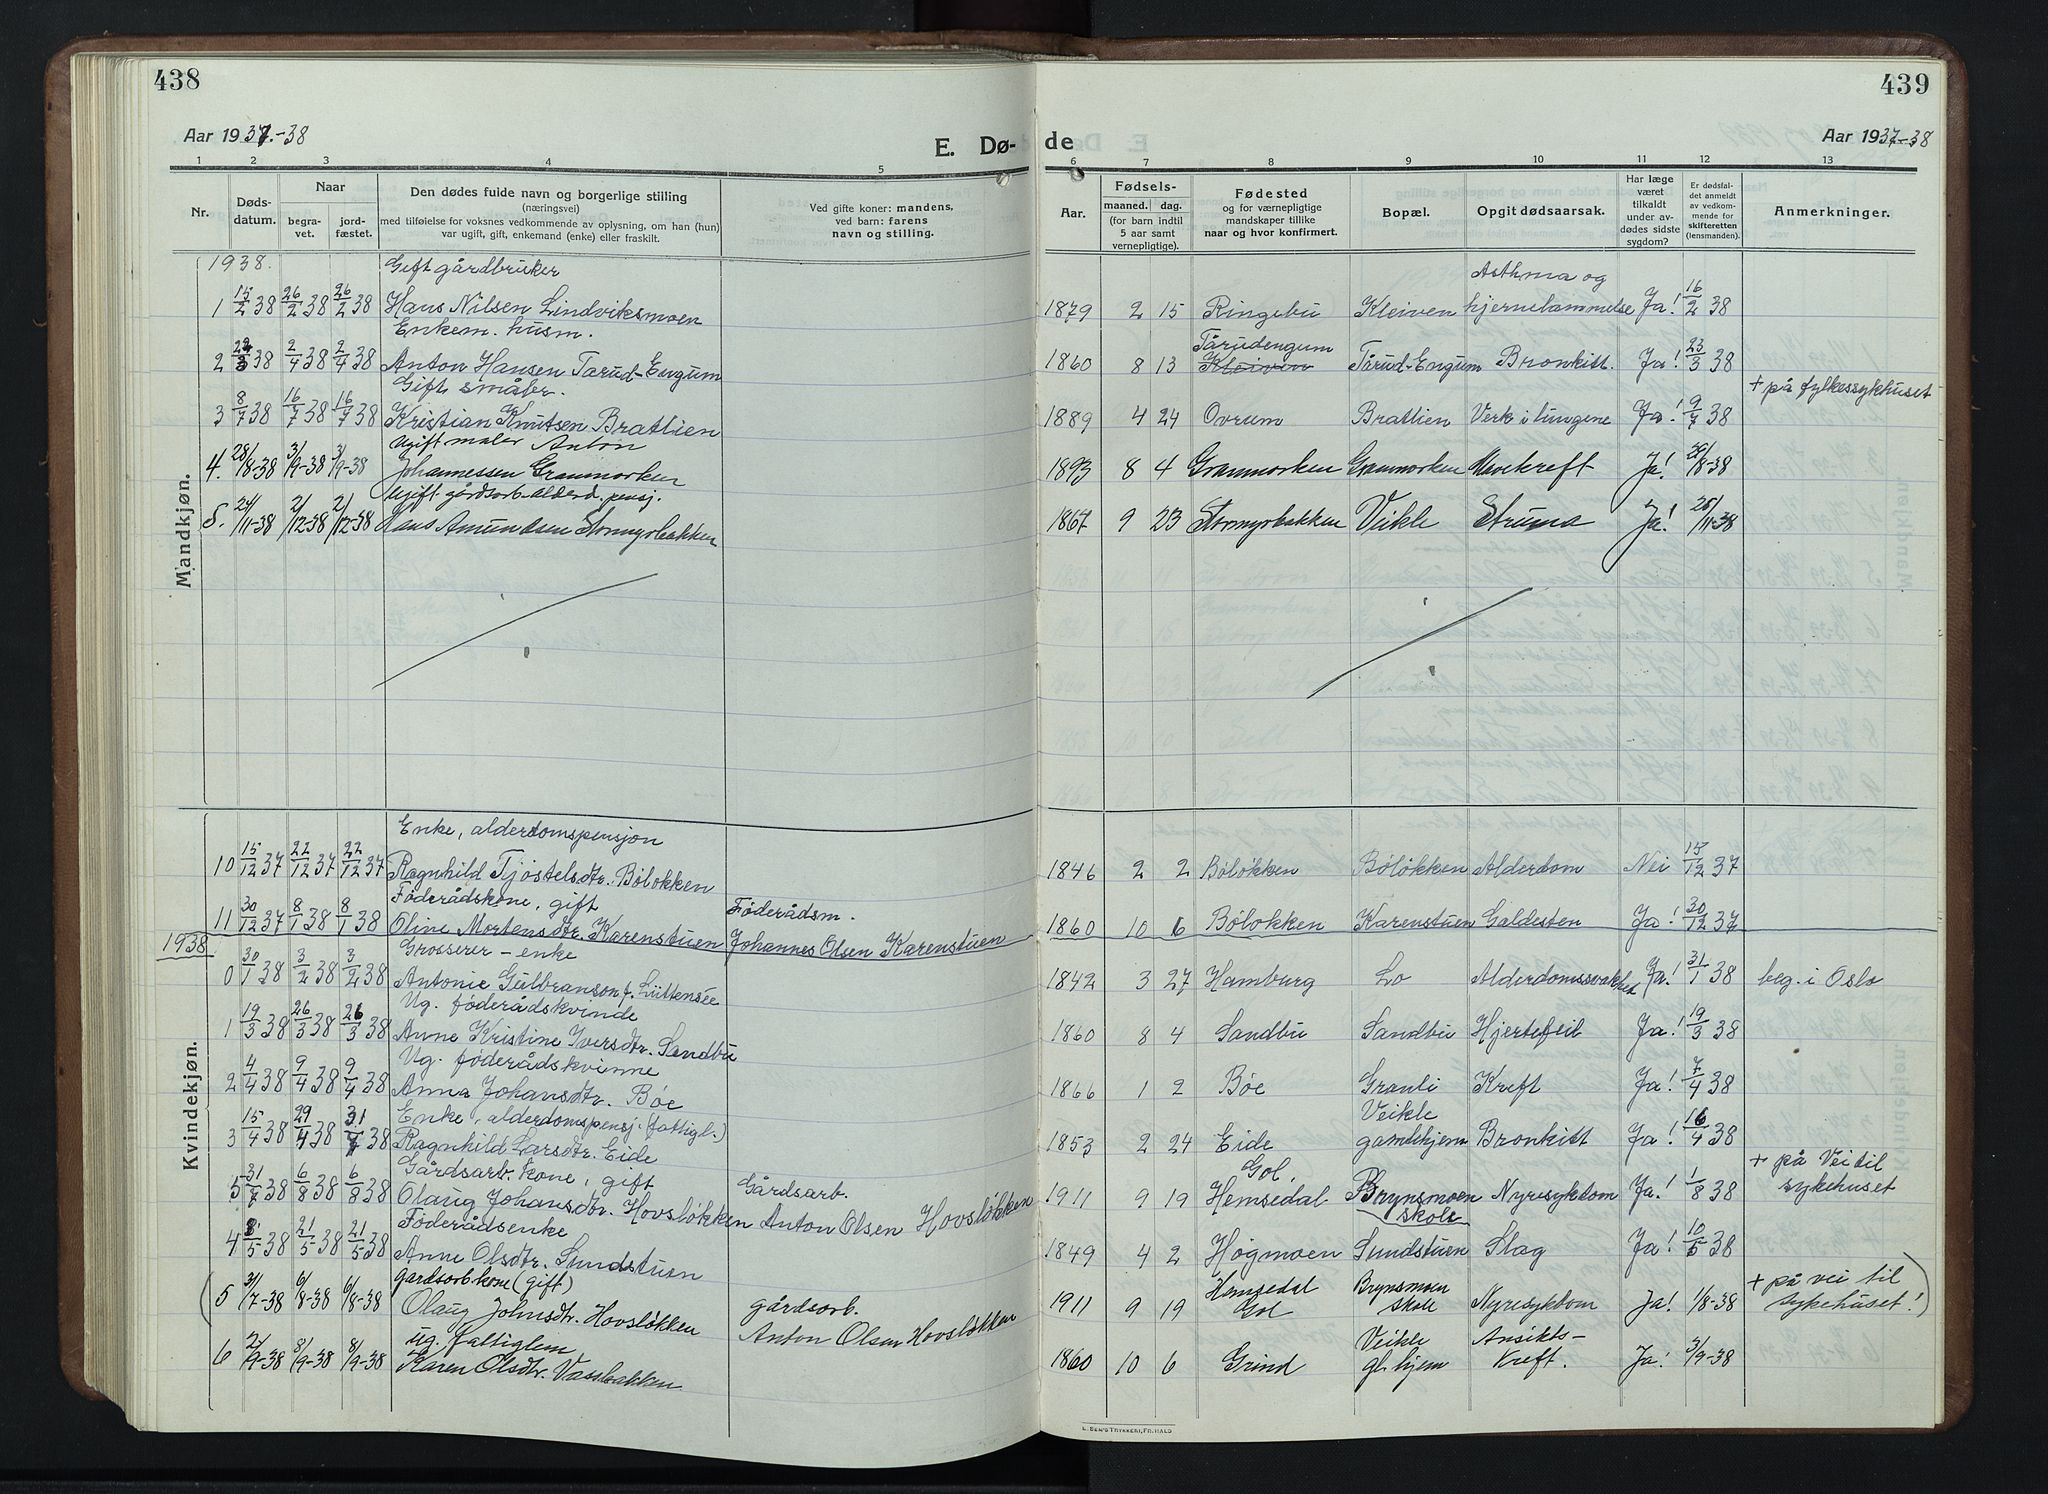 438
Aar 1937-38
E. Dø-
1 2 3 4 5
Nr.
Døds-
datum.
Naar
begra-
vet.
jord-
fæstet.
Den dødes fulde navn og borgerlige stilling
(næringsvei)
med tilføielse for voksnes vedkommende av oplysning, om han (hun)
var ugift, gift, enkemand (enke) eller fraskilt.
Ved gifte koner: mandens,
ved barn: farens
navn og stilling.
Mandkjøn.
1938. Gift gårdbruker
1 15/2 38 26/2 38 26/2 38 Hans Nilsen Lindviksmoen
Enkem. husm.
2 22/3 38 2/4 38 2/4 38 Anton Hansen Tarud-Engum
Gift småbr.
3 8/7 38 16/7 38 16/7 38 Kristian Knutsen Brattlien
Ugift maler Anton
4. 28/8-38 3/9-38 3/9-38 Johannessen Granmorken
Ugift gårdsarb. alderd. pensj.
5. 24/11-38 2/12-38 2/12-38 Hans Amundsen Stormyrbakken
Kvindekjøn.
Enke, alderdomspensjon
10 15/12 37 22/12 37 22/12 37 Ragnhild Tjøstelsdtr. Bøløkken
Føderådskone, gift
11 30/12 37 8/1 38 8/1 38 Oline Mortensdtr. Karenstuen
Føderådsm.
Johannes Olsen Karenstuen
1938
Grosserer-enke
0 30/1 38 3/2 38 3/2 38 Antonie Gulbranson f. Lüttensée
Ug. føderådskvinde
1 19/3 38 26/3 38 26/3 38 Anne Kristine Iversdtr. Sandbu
Ug. føderådskvinne
2 4/4 38 9/4 38 9/4 38 Anna Johansdtr. Bøe
Enke, alderdomspensj. (fattigl.)
3 15/4 38 29/4 38 38 Ragnhild Larsdtr. Eide
Gårdsarb. kone, gift
5 31/7 38 6/8 38 6/8 38 Olaug Johansdtr. Hovsløkken
Gårdsarb.
Anton Olsen Hovsløkken
Føderådsenke
4 8/5 38 21/5 38 21/5 38 Anne Olsdtr. Sundstuen
gårdsarb kone (gift)
(5 31/7-38 6/8-38 6/8-38 Olaug Johnsdtr. Hovsløkken
gårdsarb.
Anton Olsen Hovsløkken
ug. fattiglem
6 2/9-38 8/9-38 8/9-38 Karen Olsdtr. Vassbakken
439
de
Aar 1937-38
6 7 8 9 10 11 12 13
Aar.
Fødsels-
maaned. dag.
(for barn indtil
5 aar samt
vernepligtige).
Fødested
og for værnepligtige
mandskaper tillike
naar og hvor konfirmert.
Bopæl.
Opgit dødsaarsak.
Har læge
været
tilkaldt
under av-
dødes sidste
sygdom?
Er dødsfal-
det anmeldt
av vedkom-
mende for
skifteretten
(lensmanden).
Anmerkninger.
Asthma og
1879 2 15 Ringebu Kleiven hjernelammelse Ja! 16/2 38
Tårudengum
1860 8 13 Kleiven Tårud-Engum Bronkitt. Ja! 23/3 38
+ på fylkessykhuset
1889 4 24 Ovrum Brattlien Verk i lungene Ja! 9/7 38
1893 8 4 Granmorken Granmorken Mavekreft Ja! /8-38
1867 9 23 Stormyrbakken Veikle Struma Ja! /11-38
1846 2 2 Bøløkken Bøløkken Alderdom Nei 15/12 37
1860 10 6 Bøløkken Karenstuen Galdesten Ja! 30/12 37
1842 3 27 Hamburg Lo Alderdomssvakhet Ja! 31/1 38 beg. i Oslo
1860 8 4 Sandbu Sandbu Hjertefeil Ja! 19/3 38
1866 1 2 Bøe Granli Kreft Ja! 7/4 38
Veikle
1853 2 24 Eide gamlehjem Bronkitt Ja! 16/4 38
Gol,
+ på Vei til
1911 9 19 Hemsedal Brynsmoen Nyresykdom Ja! 1/8 38 sykehuset
skole
1849 4 2 Høgmoen Sundstuen Slag Ja! 10/5 38
Hemsedal Brynsmoen + på vei til
1911 9 19 Gol skole Nyresykdom Ja! 1/8-38 sykehuset!)
Veikle Ansikts-
1860 10 6 Grind gl. hjem kreft. Ja! 3/9-38
E. SEM'S TRYKKERI, FR.HALD